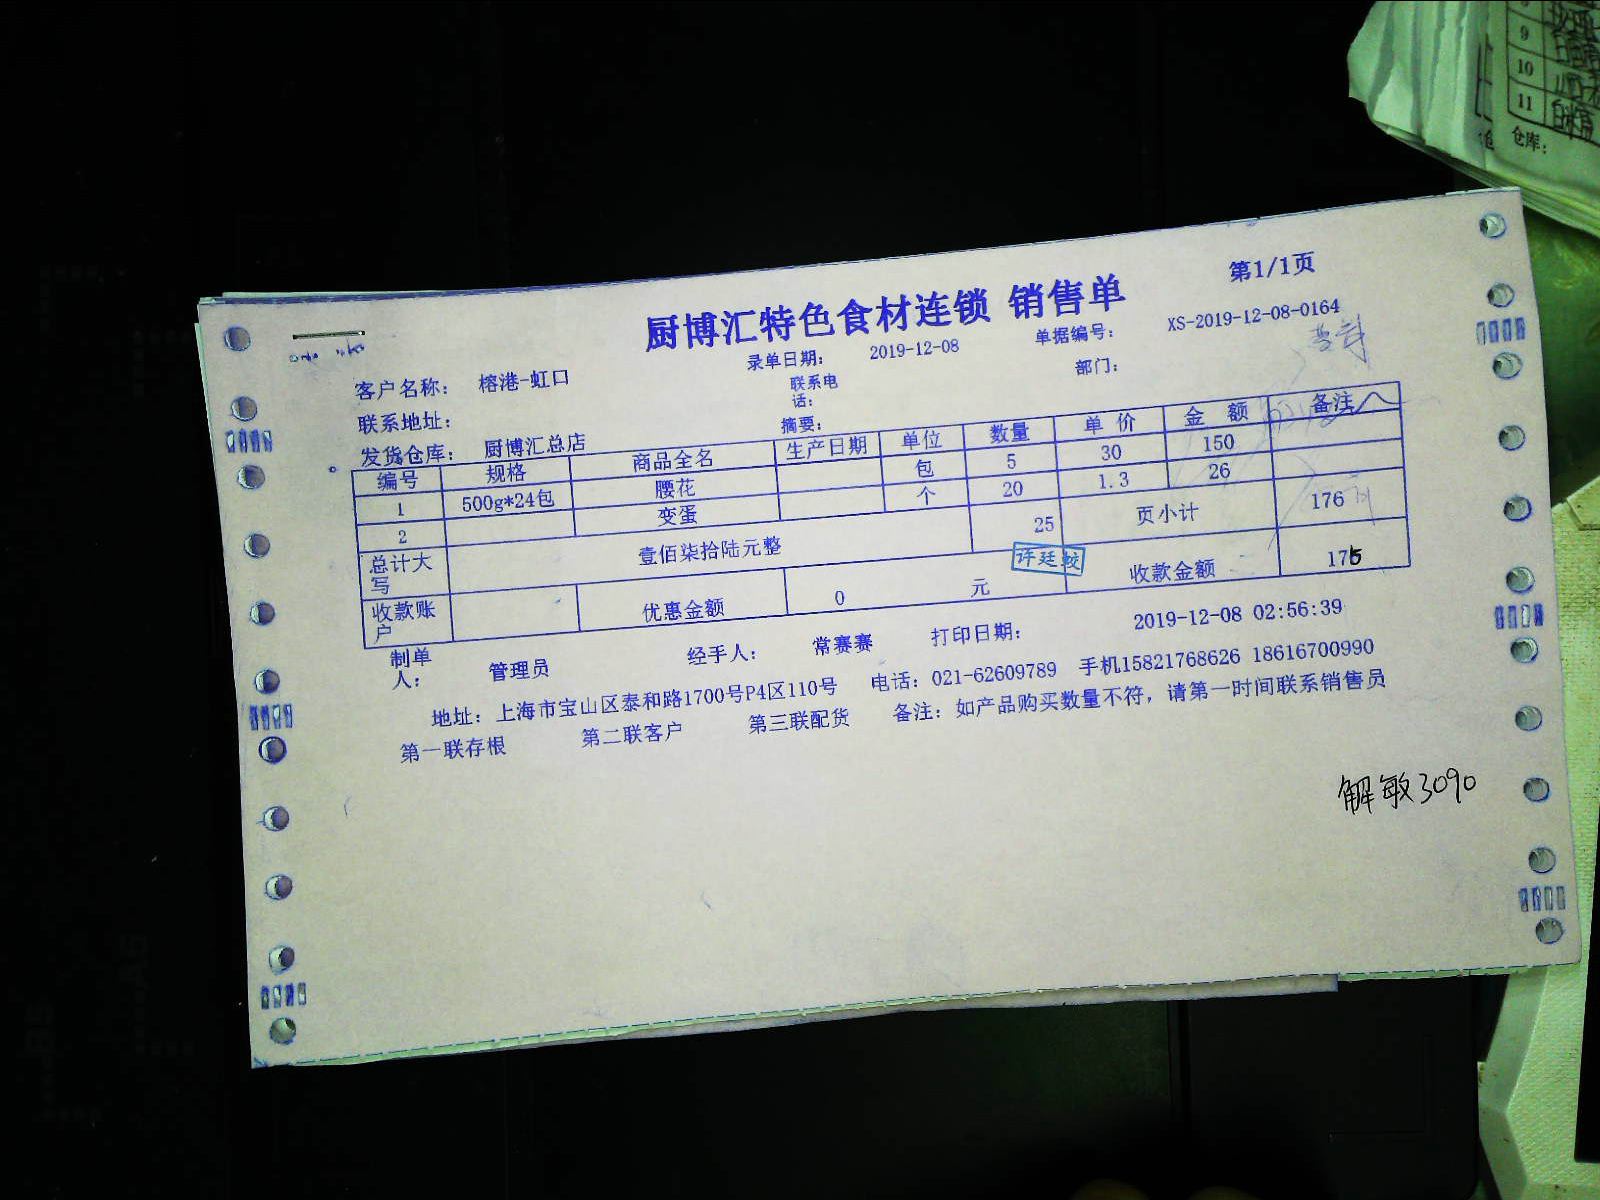 第1/1页
厨博汇特色食材连锁 销售单
录单日期： 2019-12-08 单据编号： XS-2019-12-08-0164
客户名称： 榕港-虹口 联系电话： 部门：
联系地址： 摘要：
发货仓库： 厨博汇总店
编号 规格 商品全名 生产日期 单位 数量 单 价 金 额 备注
1 500g*24包 腰花 包 5 30 150
2 变蛋 个 20 1.3 26
总计大写 壹佰柒拾陆元整 25 页小计 176
许廷蛟
收款账户 优惠金额 0 元 收款金额
制单人： 管理员 经手人： 常赛赛 打印日期： 2019-12-08 02:56:39
地址：上海市宝山区泰和路1700号P4区110号 电话：021-62609789 手机15821768626 18616700990
第一联存根 第二联客户 第三联配货 备注：如产品购买数量不符，请第一时间联系销售员
解敏3090
9
10
11
仓库：